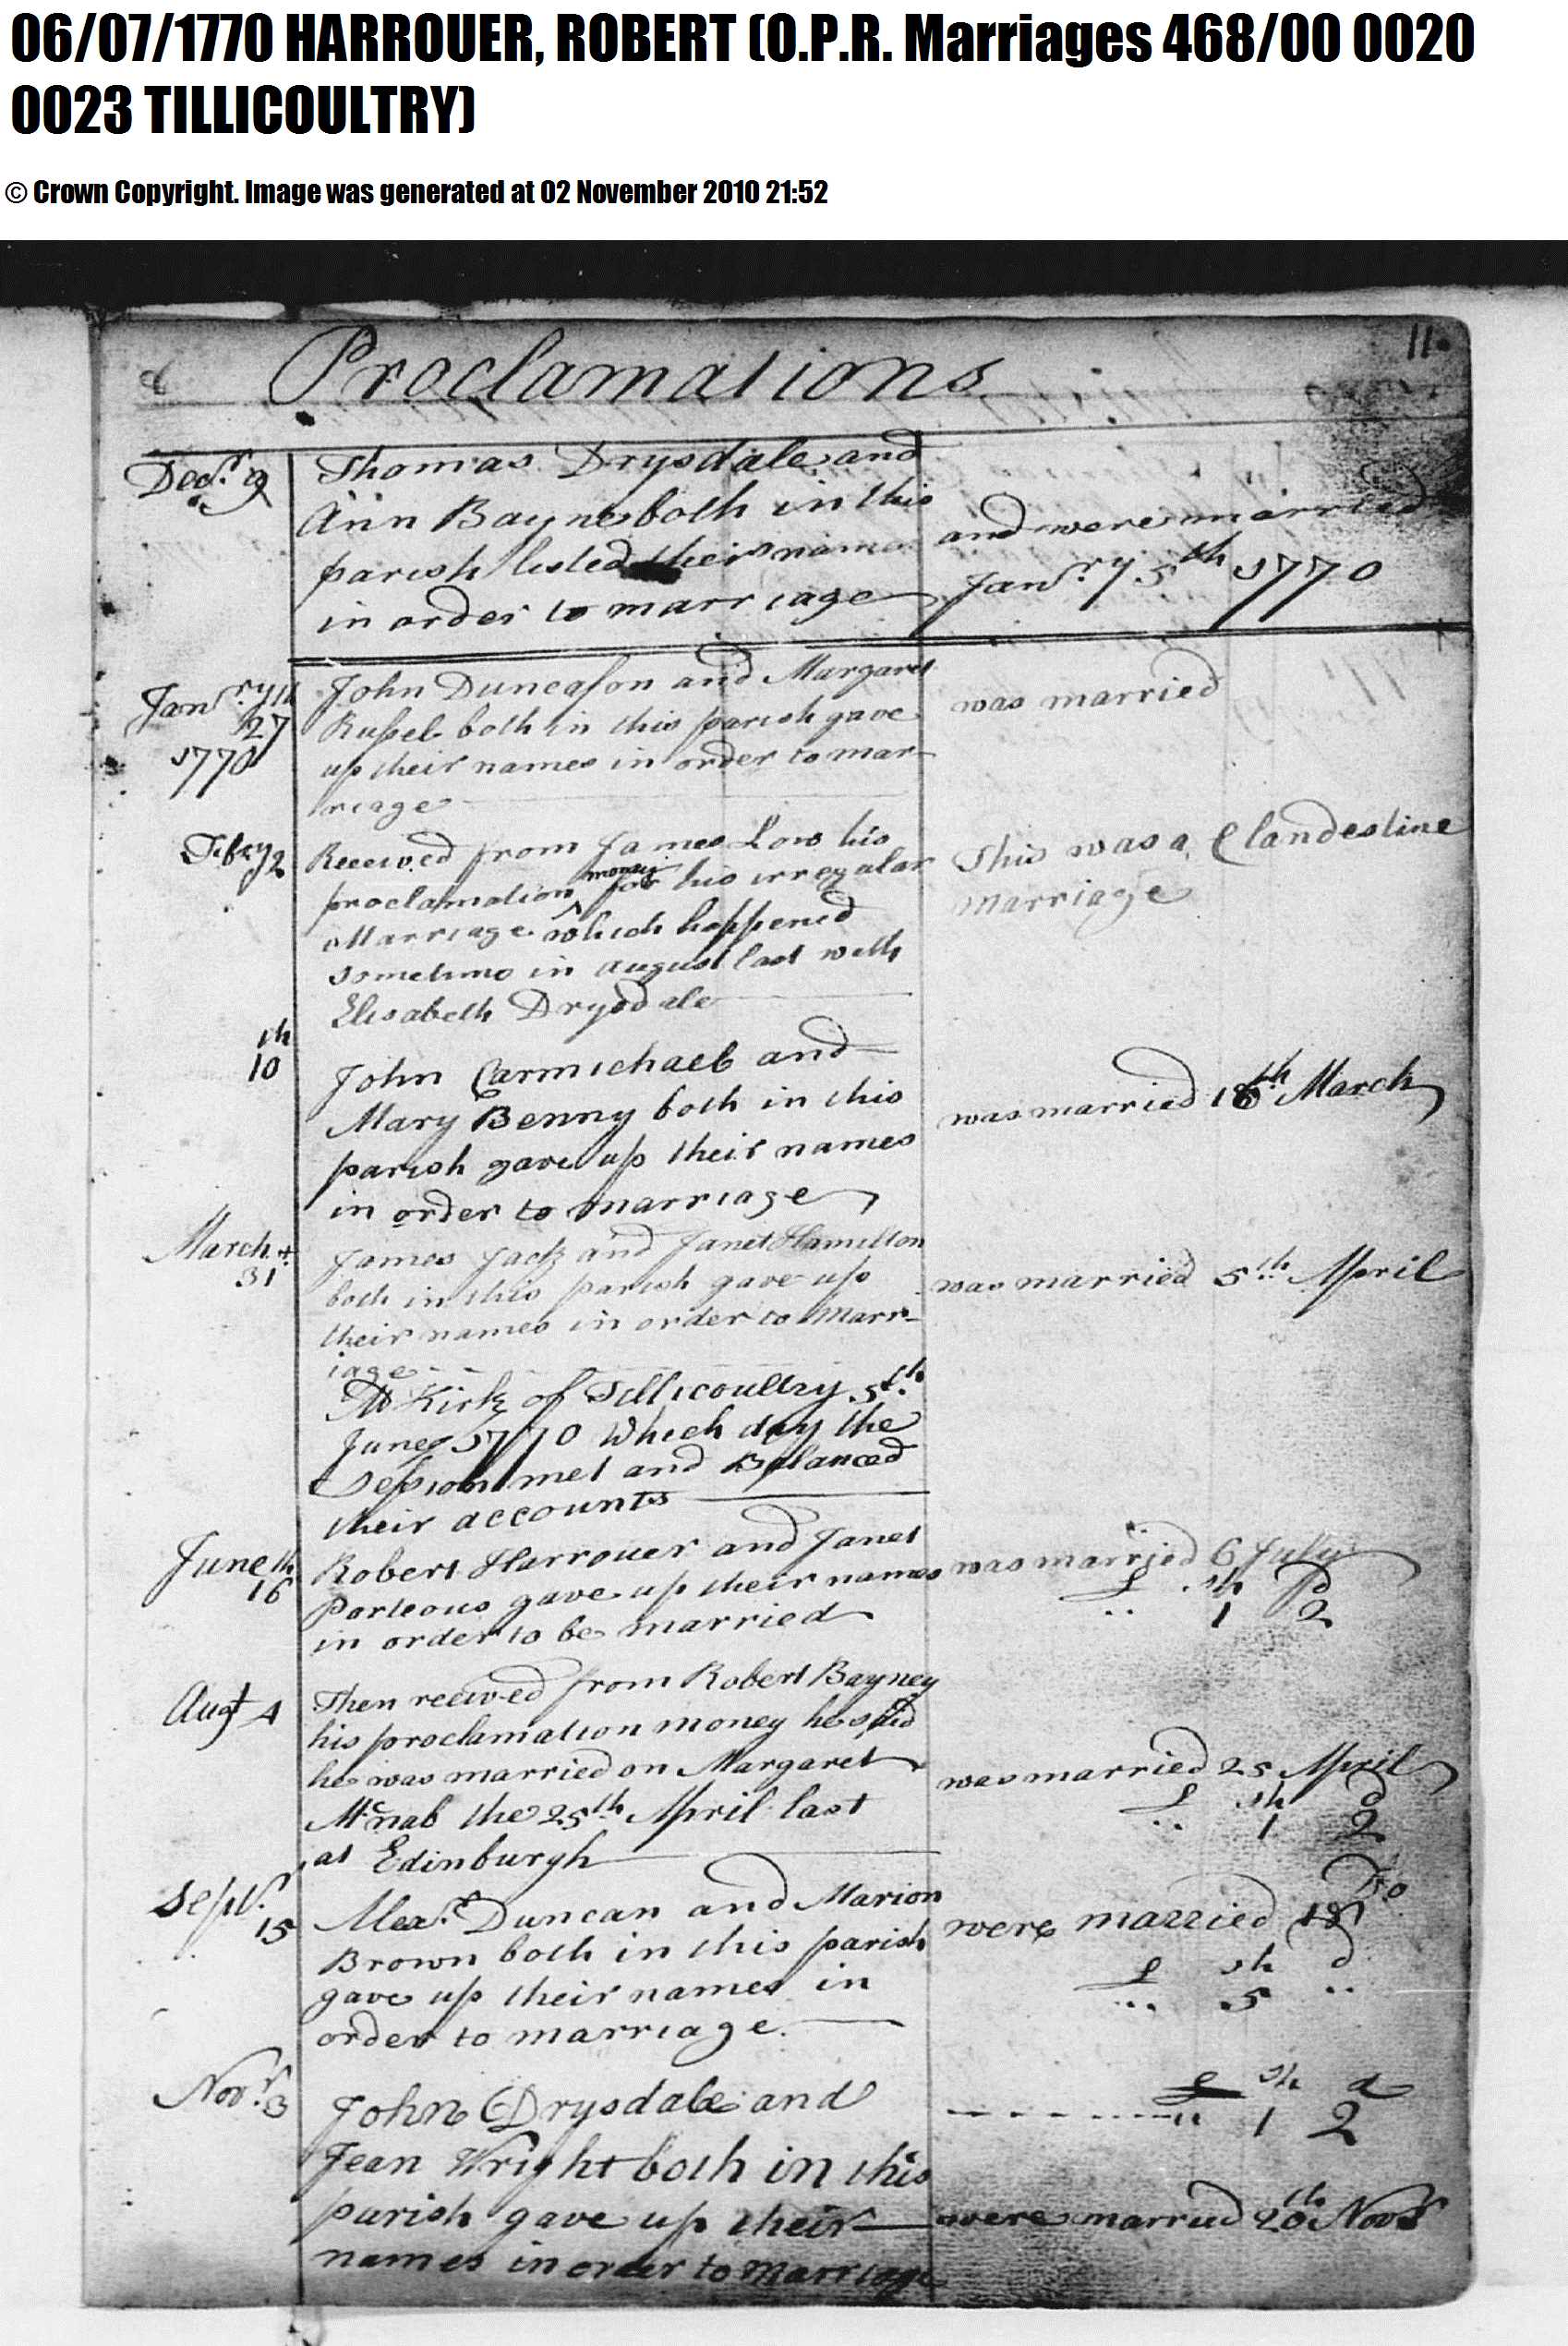 06/07/1770 HARROUER, ROBERT (O.P.R. Marriages 468/00 0020
0023 TILLICOULTRY)
© Crown Copyright. Image was generated at 02 November 2010 21:52
11
Proclamations
Decr. 9
Thomas Drysdale and
Ann Bayne both in this
parish listed their names
in order to marriage
and were married
Janry 5th 1770
Janry
27
1770
John Duncason and Margaret
Russel both in this parish gave
up their names in order to mar-
riage
was married
Febry 2
Received from James Low his
proclamation money for his irregular
Marriage which happened
sometime in august last with
Elisabeth Drysdale
This was a Clandestine
Marriage
10th
John Carmichael and
Mary Benny both in this
parish gave up their names
in order to marriage
was married 16th March
March
31
James Jack and Janet Hamilton
both in this parish gave up
their names in order to Marr-
iage
was married 5th April
At Kirk of Tillicoultry 5th
June 1770 Which day the
Session met and Balanced
their accounts
June
16th
Robert Harrouer and Janet
Porteous gave up their names
in order to be married
was married 6 July
£ sh d
.. 1 2
Augt 4
Then receved from Robert Bayney
his proclamation money he said
he was married on Margaret
Mcnab the 25th April last
at Edinburgh
was married 25 April
£ sh d
.. 1 2
Septr.
15
Alexr. Duncan and Marion
Brown both in this parish
gave up their names in
order to marriage.
were married
£ sh d
... 5 ..
Novr. 3
John Drysdale and
Jean Wright both in this
parish gave up their
names in order to marriage
£ sh d
.. 1 2
were married 20th Novr